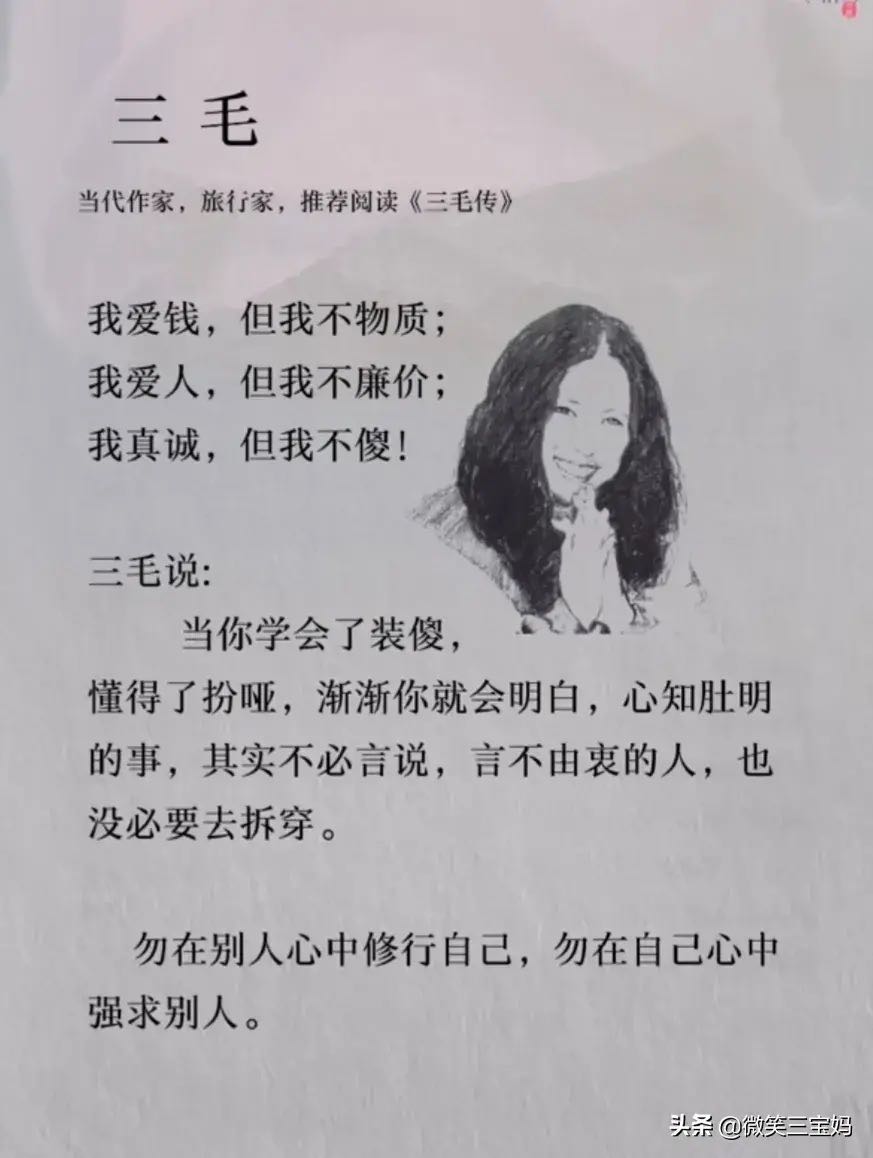 三毛
当代作家，旅行家，推荐阅读《三毛传》
我爱钱，但我不物质；
我爱人，但我不廉价；
我真诚，但我不傻！
三毛说：
当你学会了装傻，
懂得了扮哑，渐渐你就会明白，心知肚明
的事，其实不必言说，言不由衷的人，也
没必要去拆穿。
勿在别人心中修行自己，勿在自己心中
强求别人。
头条 @微笑三宝妈